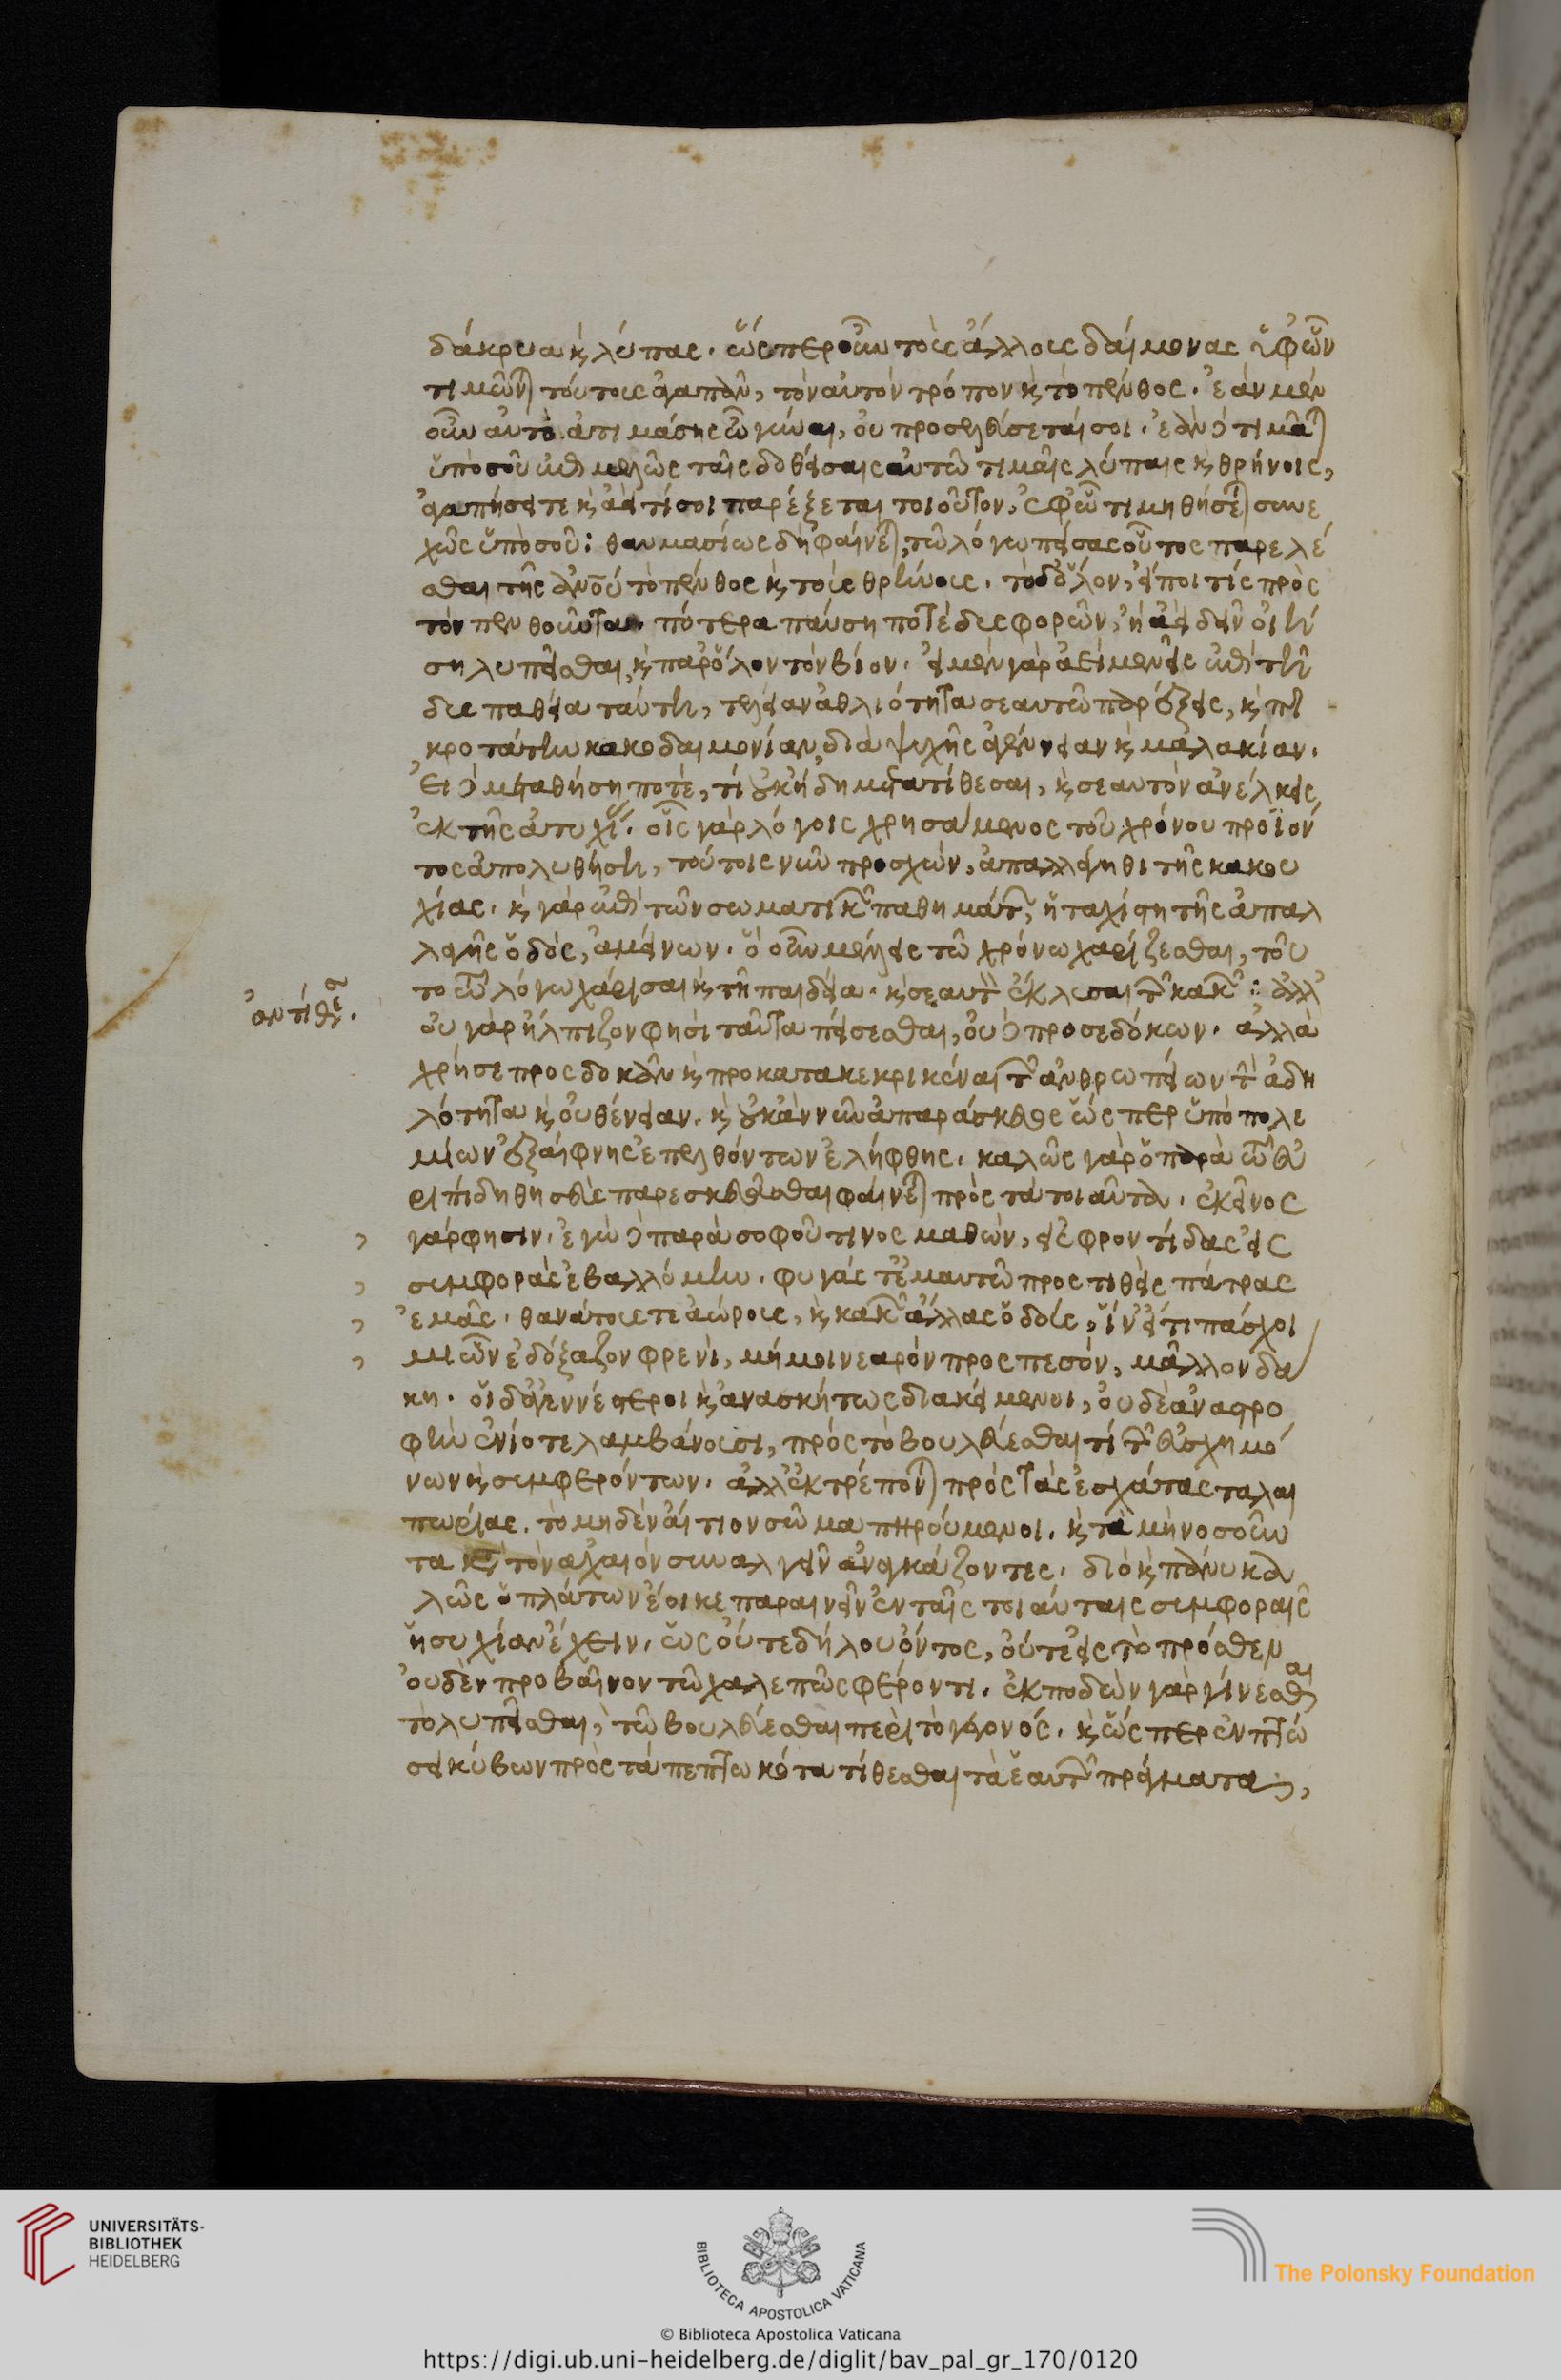 δάκρυα κ λύπας. ὥσπερ οὖν τοὺς ἄλλους δαίμονας ὑφ ὧν
τιμῶν τούτους ἀγαπᾶν, τὸν αὐτὸν τρόπον κ τὸ πένθος. ἐὰν μὲν
οὖν αὐτὸ ἀτιμάσης ὦ γύναι, οὐ προσελεύσεταί σοι. ἐὰν δὲ τιμᾶ
ὑπὸ σοῦ ἐπιμελῶς ταῖς δοθείσαις αὐτῶ τιμαῖς λύπαις κ θρήνοις,
ἀγαπήσει τε κ ἀεί τί σοι παρέξεται τοιοῦτον, ἐφ ὧ τιμηθήσε συνε
χῶς ὑπὸ σοῦ: θαυμασίως δὴ φαίνε, τῶ λόγω πείσας οὗτος παρελέ
σθαι τῆς ἀνου τὸ πένθος κ τοὺς θρήνους. τὸ δ ὅλον, εἴποι τίς πρὸς
τὸν πενθοῦντα πότερα παύση ποτὲ δυσφορῶν, ἢ ἀεὶ δεῖν οἰή
ση λυπεῖσθαι, κ παρ ὅλον τὸν βίον. εἰ μὲν γὰρ ἀεὶ μενεῖς ἐπὶ τῆ
δυσπαθεία ταύτη, τελείαν ἀθλιότητα σεαυτῶ παρέξεις, κ πι
κροτάτην κακοδαιμονίαν, διὰ ψυχῆς ἀγένειαν κ μαλακίαν.
εἰ δὲ μεταθήση ποτὲ, τί οὐκ ἤδη μετατίθεσαι, κ σεαυτὸν ἀνέλκεις
ἐκ τῆς ἀτυχί. οἷς γὰρ λόγοις χρησάμενος τοῦ χρόνου προϊόν
τος ἀπολυθήση, τούτοις νῦν προσχὼν, ἀπαλλάγηθι τῆς κακου
χίας. κ γὰρ ἐπὶ τῶν σωματικ παθημάτ, ἡ ταχίστη τῆς ἀπαλ
λαγῆς ὁδὸς, ἀμείνων. ὃ οὖν μέλλεις τῶ χρόνω χαρίζεσθαι, τοῦ
το τῶ λόγω χάρισαι κ τῆ παιδεία. κ σεαυτ ἔκλυσαι τ κακ: ἀλλ
ἀντίθε.
οὐ γὰρ ἤλπιζον φησὶ ταῦτα πείσεσθαι, οὐδὲ προσεδόκων. ἀλλὰ
χρῆν σε προσδοκᾶν κ προκατακεκρικέναι τ ἀνθρωπείων τ ἀδη
λότητα κ οὐθένειαν. κ οὐκ ἂν νῦν ἀπαράσκευος ὥσπερ ὑπὸ πολε
μίων ἐξαίφνης ἐπελθόντων ἐλήφθης. καλῶς γὰρ ὁ παρὰ τῶ εὐ
ριπίδη θησεὺς παρεσκευᾶσθαι φαίνε πρὸς τὰ τοιαῦτα. ἐκεῖνος
γάρ φησιν. ἐγὼ δὲ παρὰ σοφοῦ τινος μαθὼν, εἰς φροντίδας εἰς
συμφορὰς ἐβαλλόμην. φυγάς τ ἐμαυτῶ προστιθεὶς πάτρας
ἐμᾶς. θανάτους τε ἀώρους, κ κακ ἄλλας ὁδοὺς, ἵν εἴ τι πάσχοι
μι ὧν ἐδόξαζον φρενὶ, μή μοι νεαρὸν προσπεσὸν, μᾶλλον δα
κη. οἱ δ ἀγεννέστεροι κ ἀνασκήτως διακείμενοι, οὐδὲ ἀναστρο
φὴν ἐνίοτε λαμβάνουσι, πρὸς τὸ βουλεύεσθαι τί τ εὐσχημό
νων κ συμφερόντων. ἀλλ ἐκτρέπον πρὸς τὰς ἐσχάτας ταλαι
πωρίας. τὸ μηδὲν αἴτιον σῶμα τιμωρούμενοι. κ τὰ μὴ νοσοῦν
τα κτ τὸν ἀχαιὸν συναλγεῖν ἀναγκάζοντες. διὸ κ πάνυ κα
λῶς ὁ πλάτων ἔοικε παραινεῖν ἐν ταῖς τοιαύταις συμφοραῖς
ἡσυχίαν ἔχειν. ὡς οὔτε δήλου ὄντος, οὔτ εἰς τὸ πρόσθεν
οὐδὲν προβαῖνον τῶ χαλεπῶς φέροντι. ἐκποδὼν γὰρ γίνεσθαι
τὸ λυπεῖσθαι, τῶ βουλεύεσθαι περὶ τὸ γεγονός. κ ὥσπερ ἐν πτώ
σει κύβων πρὸς τὰ πεπτωκότα τίθεσθαι τὰ ἑαυτ πράγματα,
UNIVERSITÄTS-
BIBLIOTHEK
HEIDELBERG
BIBLIOTECA APOSTOLICA VATICANA
The Polonsky Foundation
© Biblioteca Apostolica Vaticana
https://digi.ub.uni-heidelberg.de/diglit/bav_pal_gr_170/0120